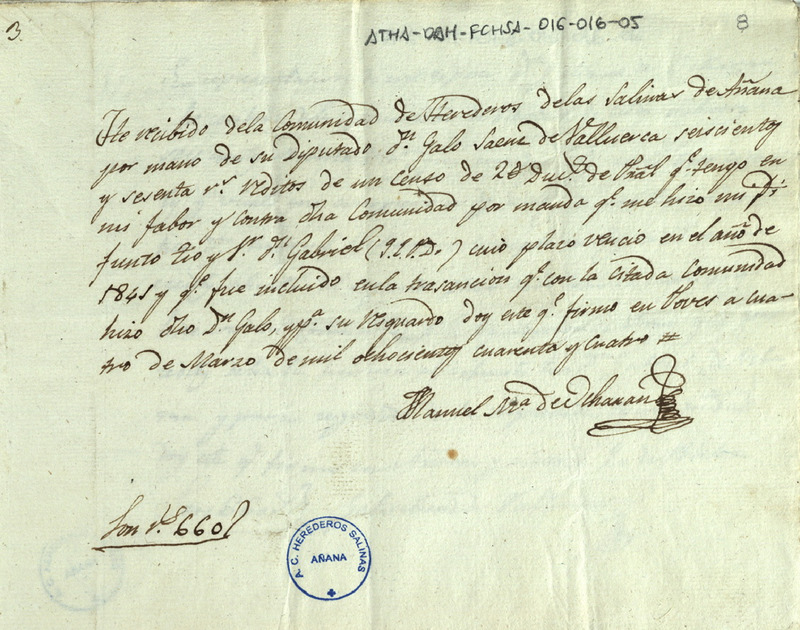 3.
ATHA-DAH-FCHSA-016-016-05
8
He recibido dela Comunidad de Herederos delas Salinas de Añana
por mano de su Diputado Dn Galo Saenz de Valluerca seiscientos
y sesenta rs reditos de un censo de 2000 Ducs de Pral qe tengo en
mi fabor y contra dha Comunidad por manda qe me hizo mi Di-
funto tio y Sr Dn Gabriel (Q.E.P.D.) cuio plazo vencio en el año de
1841 y qe fue incluido enla trasancion qe con la citada Comunidad
hizo dho Dn Galo, y pa su resguardo doy este qe firmo en Toves a cua-
tro de Marzo de mil ochocientos cuarenta y cuatro =
Manuel Ma de
Son rs 660
A. C. HEREDEROS SALINAS
AÑANA